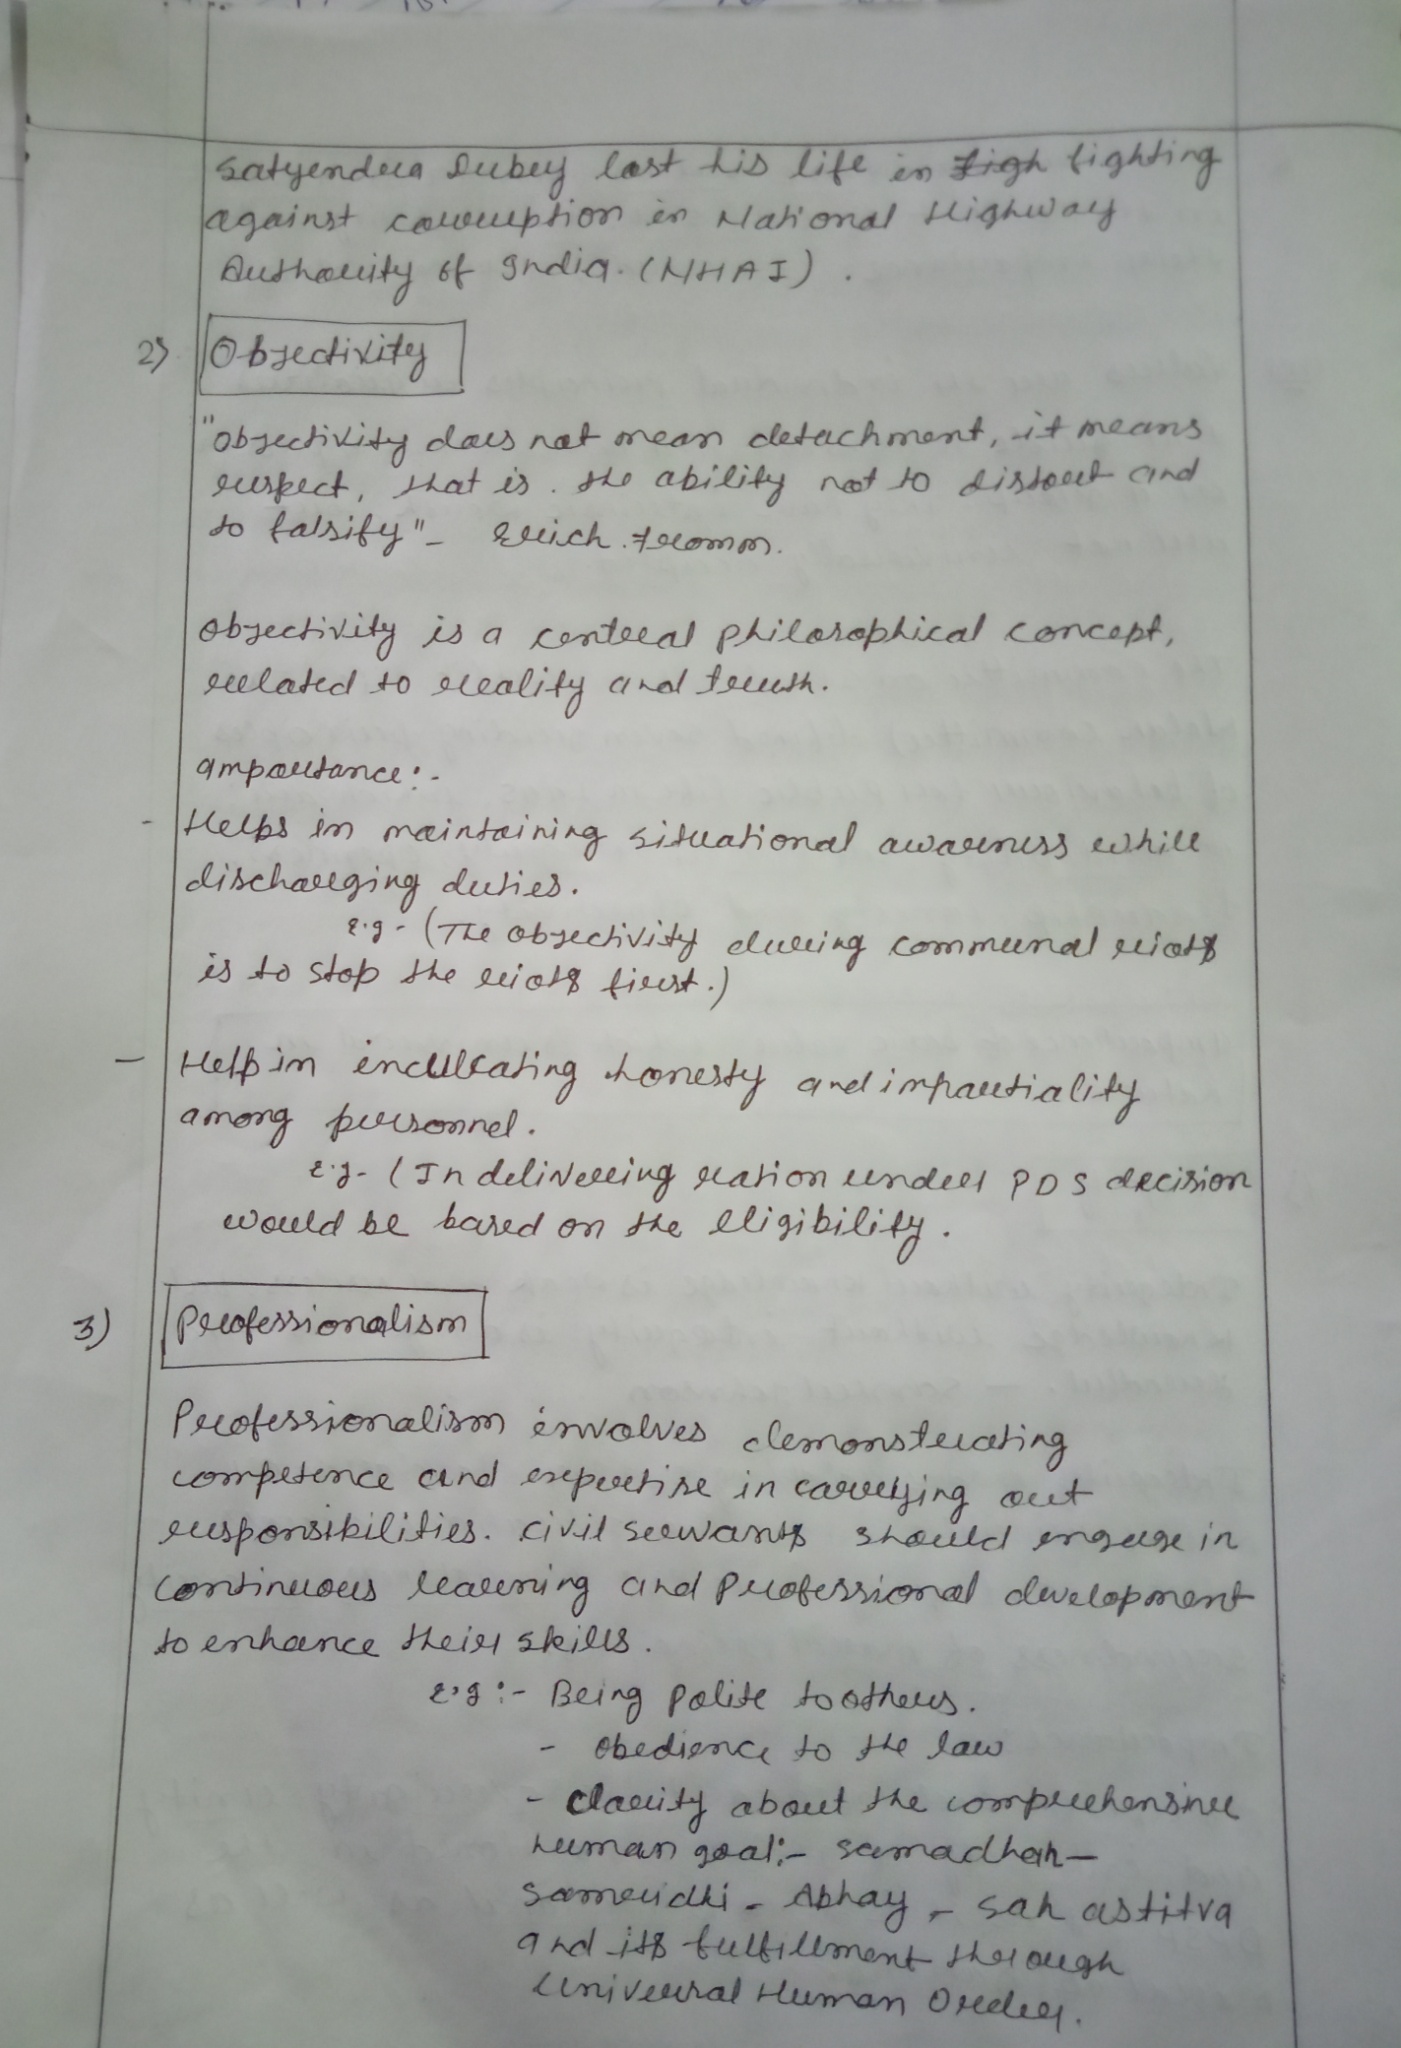 Satyendra Dubey lost his life in Figh fighting
against corruption in National Highway
Authority of India. (NHAI).
2) Objectivity
"Objectivity does not mean detachment, it means
respect, that is. the ability not to distort and
to falsify" - Erich. Fromm.
Objectivity is a central philosophical concept,
related to reality and truth.
Importance:-
- Helps in maintaining situational awareness while
discharging duties.
e.g - (The objectivity during communal riots
is to stop the riots first.)
- Help in inculcating honesty and impartiality
among personnel.
e.g - (In delivering ration under PDS decision
would be based on the eligibility.
3) Professionalism
Professionalism involves demonstrating
competence and expertise in carrying out
responsibilities. Civil servants should engage in
continuous learning and professional development
to enhance their skills.
e.g :- Being polite to others.
- Obedience to the law
- Clarity about the comprehensive
human goal:- samadhah -
samridhi - Abhay - sah astitva
and its fulfillment through
Universal Human Order.